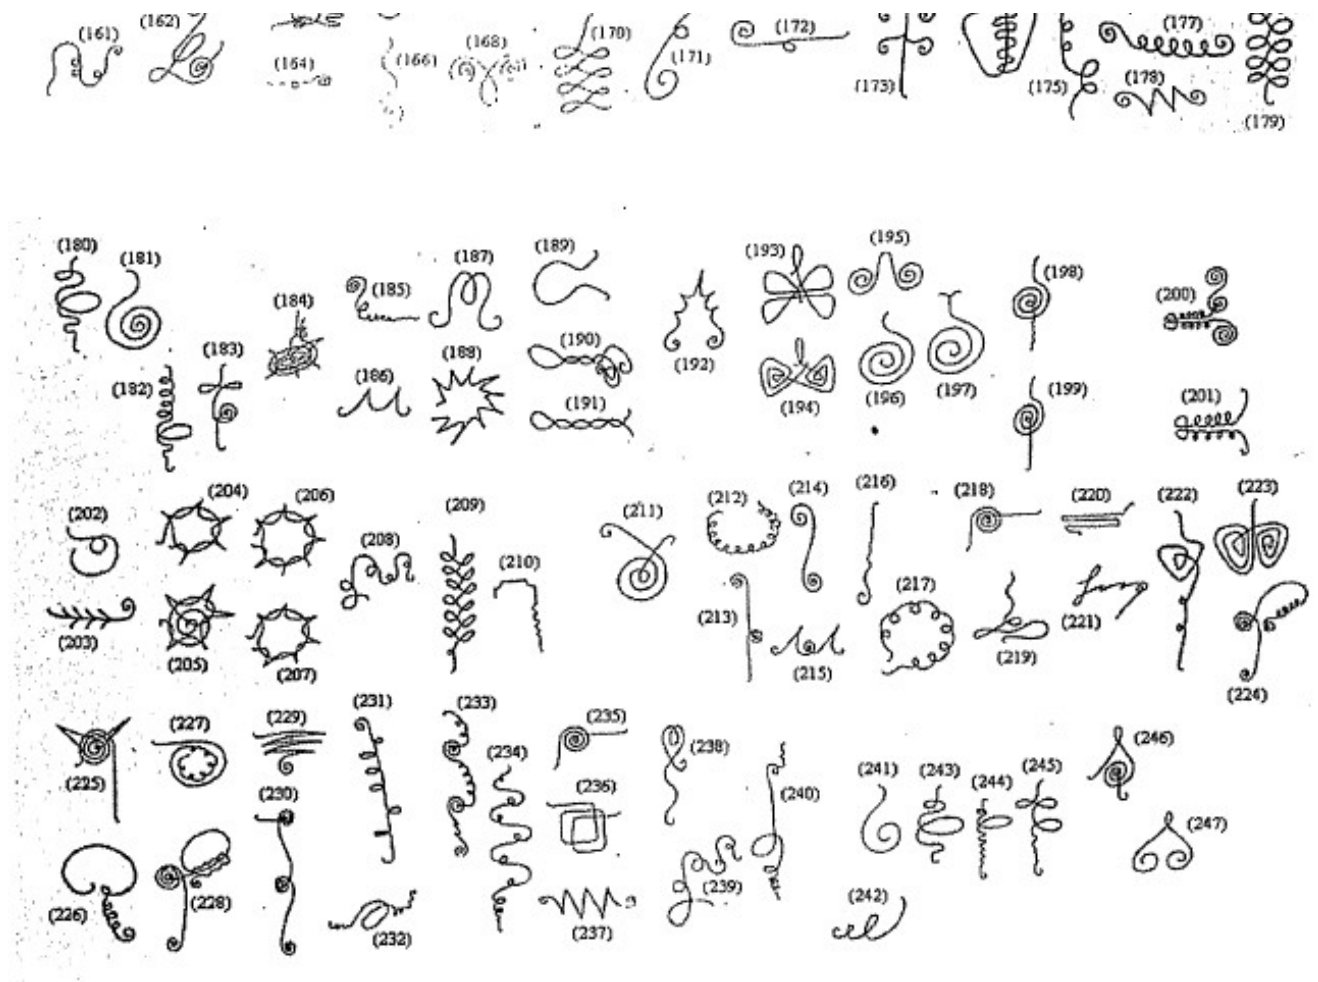 (161) (162) (164) (166) (168) (170) (171) (172) (173) (175) (177) (178) (179)
(180) (181) (182) (183) (184) (185) (186) (187) (188) (189) (190) (191) (192) (193) (194) (195) (196) (197) (198) (199) (200) (201)
(202) (203) (204) (205) (206) (207) (208) (209) (210) (211) (212) (213) (214) (215) (216) (217) (218) (219) (220) (221) (222) (223) (224)
(225) (226) (227) (228) (229) (230) (231) (232) (233) (234) (235) (236) (237) (238) (239) (240) (241) (242) (243) (244) (245) (246) (247)